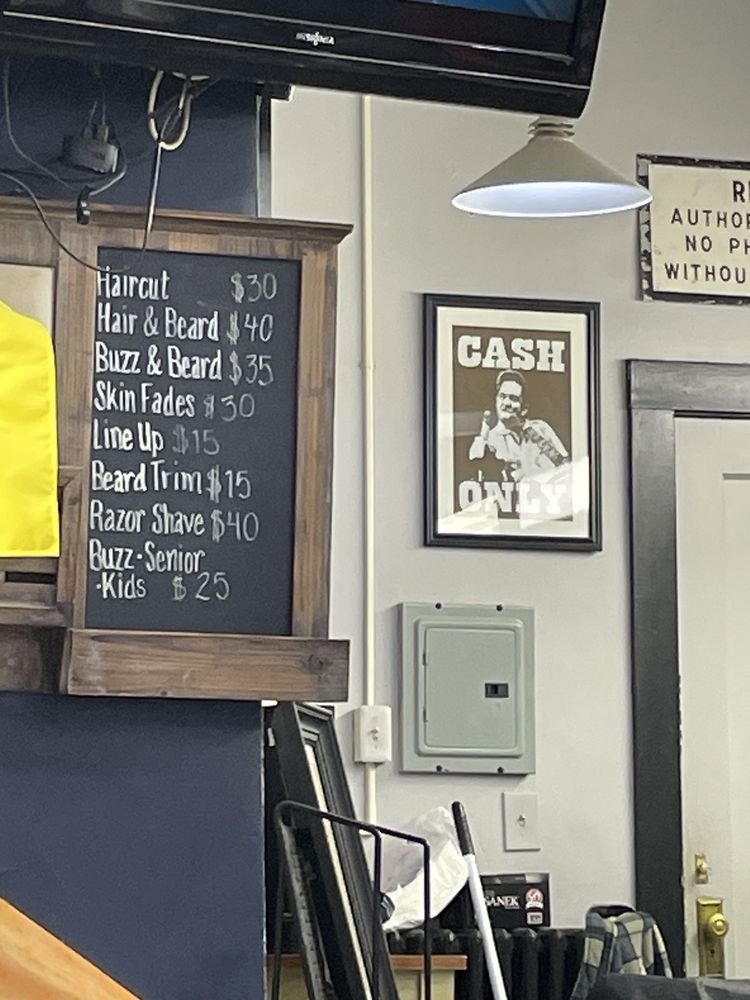 INSIGNIA
Haircut $30
Hair & Beard $40
Buzz & Beard $35
Skin Fades $30
Line Up $15
Beard Trim $15
Razor Shave $40
Buzz-Senior
·Kids $25
CASH
ONLY
R
AUTHO
NO PH
WITHOU
SANEK